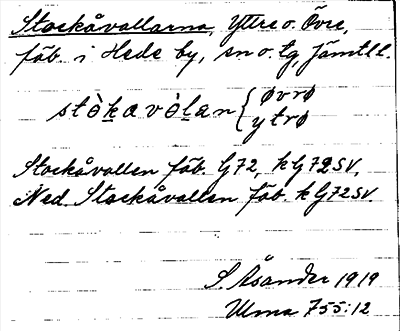 Stockåvallarna, Yttre o. Övre,
fäb. i Hede by, sn o. tg, Jämtl l.
stòkavòlan { øvrø
ytrø
Stockåvallen fäb. G72, kG72SV,
Ned. Stockåvallen fäb. kG72SV.
S. Åsander 1919
Ulma 755:12